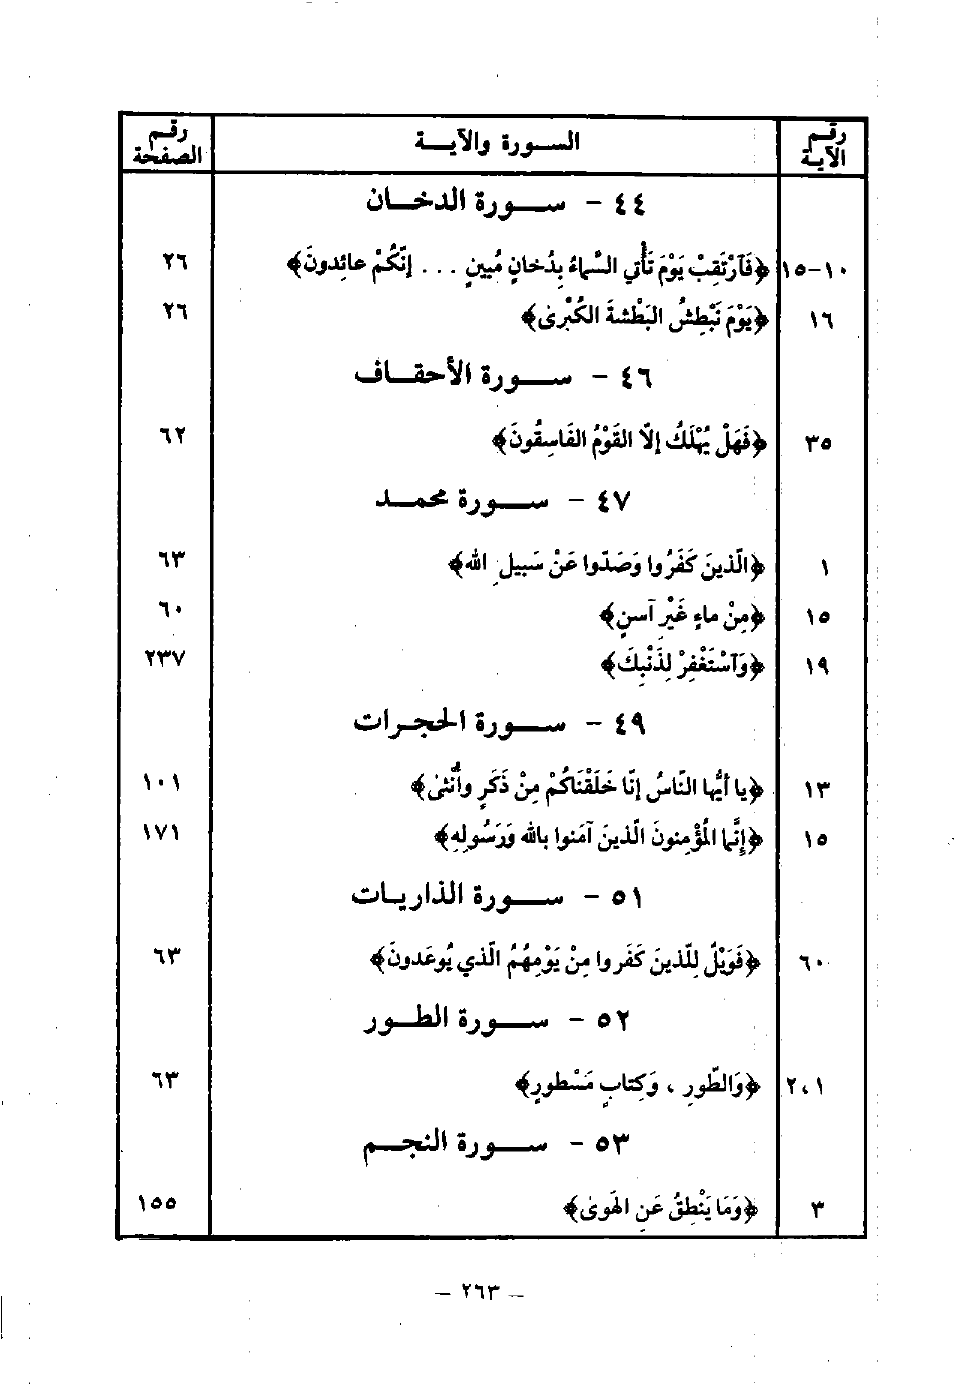 رقم الآية | السورة والآية | رقم الصفحة
٤٤ - سورة الدخان
١٠-١٥ | ﴿فَآرْتَقِبْ يَوْمَ تَأْتي السَّماءُ بِدُخانٍ مُبينٍ ... إنّكُمْ عائِدونَ﴾ | ٢٦
١٦ | ﴿يَوْمَ نَبْطِشُ البَطْشةَ الكُبْرىٰ﴾ | ٢٦
٤٦ - سورة الأحقاف
٣٥ | ﴿فَهَلْ يُهْلَكُ إلّا القَوْمُ الفَاسِقُونَ﴾ | ٦٢
٤٧ - سورة محمد
١ | ﴿الّذينَ كَفَرُوا وَصَدّوا عَنْ سَبيلِ الله﴾ | ٦٣
١٥ | ﴿مِنْ ماءٍ غَيْرِ آسنٍ﴾ | ٦٠
١٩ | ﴿وَآسْتَغْفِرْ لِذَنْبِكَ﴾ | ٢٣٧
٤٩ - سورة الحجرات
١٣ | ﴿يا أيُّها النّاسُ إنّا خَلَقْنَاكُمْ مِنْ ذَكَرٍ وأُنْثىٰ﴾ | ١٠١
١٥ | ﴿إِنَّما المُؤْمِنونَ الّذينَ آمَنوا بالله وَرَسُولِهِ﴾ | ١٧١
٥١ - سورة الذاريات
٦٠ | ﴿فَوَيْلٌ لِلّذينَ كَفَروا مِنْ يَوْمِهُمُ الّذي يُوعَدونَ﴾ | ٦٣
٥٢ - سورة الطور
١، ٢ | ﴿وَالطّورِ ، وَكِتابٍ مَسْطورٍ﴾ | ٦٣
٥٣ - سورة النجم
٣ | ﴿وَمَا يَنْطِقُ عَنِ الهَوىٰ﴾ | ١٥٥
– ٢٦٣ –